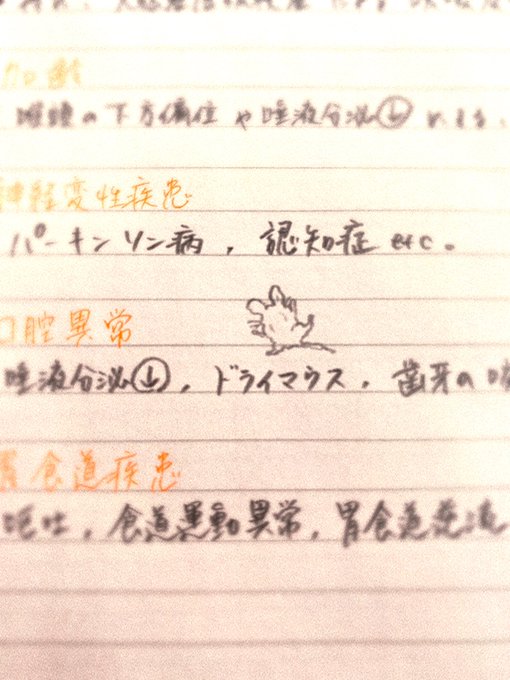 加齢
喉頭の下方偏位や唾液分泌↓による。
神経変性疾患
パーキンソン病，認知症 etc。
口腔異常
唾液分泌↓，ドライマウス，歯牙の
胃食道疾患
嘔吐，食道運動異常，胃食道逆流